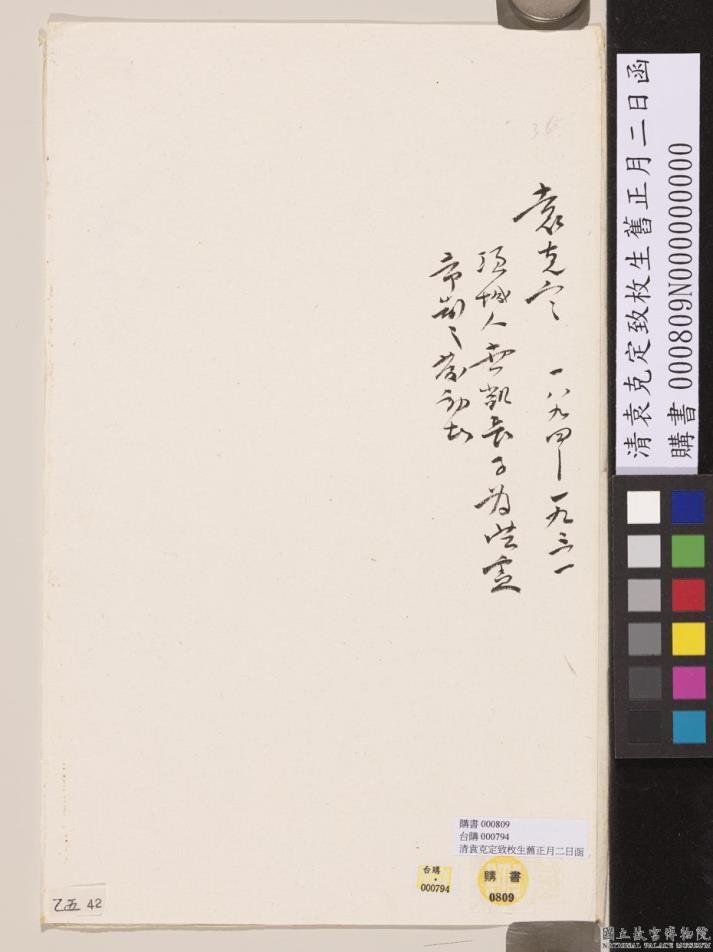 袁克定 一八九四—一九三一
項城人世凱長子為洪憲
帝制之發動者
清袁克定致枚生舊正月二日函
購書 000809N000000000
購書 000809
台購 000794
清袁克定致枚生舊正月二日函
台購
000794
購書
0809
乙五 42
國立故宮博物院
NATIONAL PALACE MUSEUM